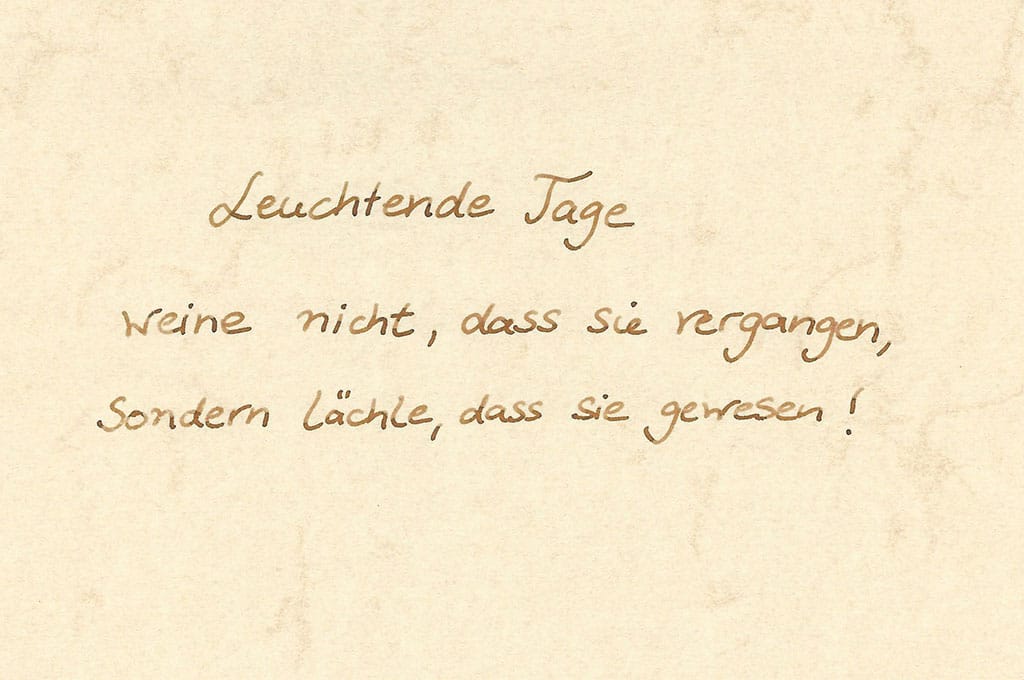 Leuchtende Tage
Weine nicht, dass sie vergangen,
Sondern lächle, dass sie gewesen!